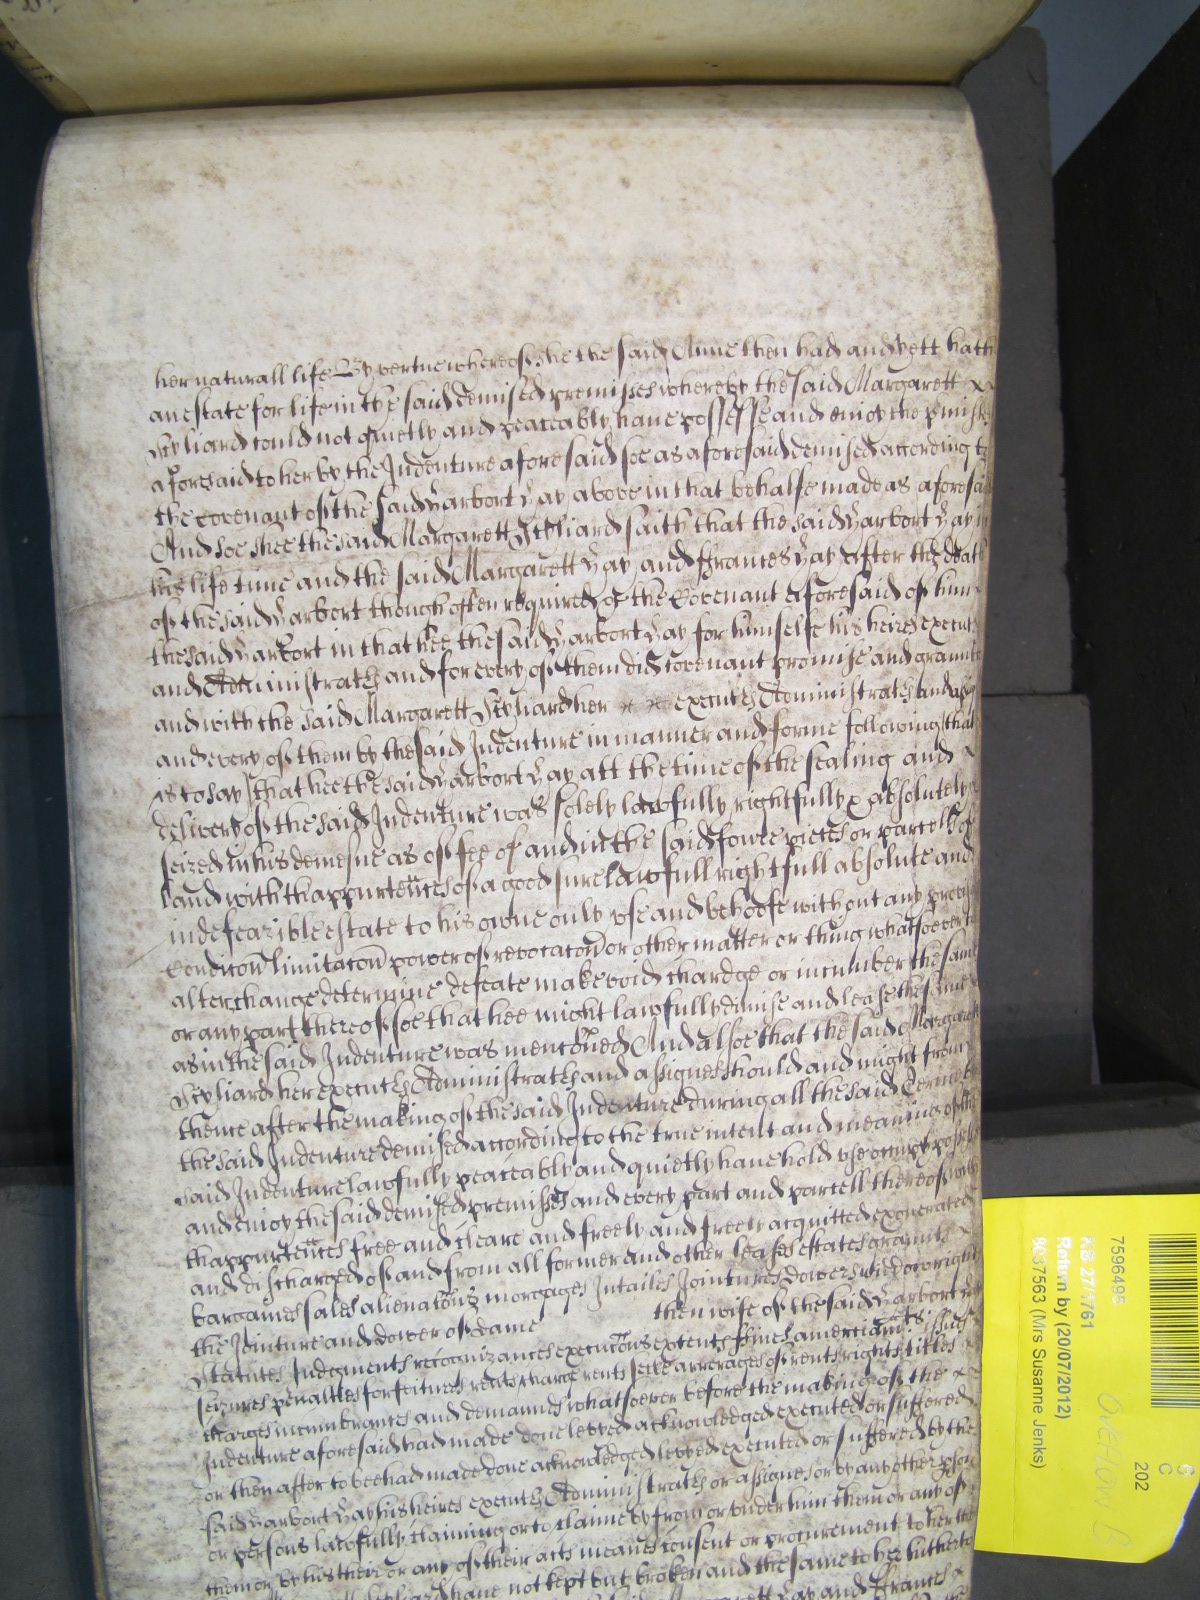 her naturall life By vertue whereof she the said Anne then had and yett hath
an estate for life in the said demised premisses whereby the said Margarett
Styliard could not quietly and peaceably have possesse and enioy the pmiss
aforesaid to her by the Indenture aforesaid soe as aforesaid demised according to
the covenant of the said Yarbort Yay above in that behalfe made as aforesaid
And soe shee the said Margarett Styliard saith that the said Yarbort Yay in
his life time and the said Margarett Yay and Frances Yay after the death
of the said Yarbort though often required of the Covenant aforesaid of him
the said Yarbort in that hee the said Yarbort Yay for himselfe his heires execut
and Administrat and for every of them did covenant promise and graunt
and with the said Margarett Styliard her execut Administrat and assig
and every of them by the said Indenture in manner and forme following that
is to say that hee the said Yarbort Yay att the time of the sealing and
delivery of the said Indenture was solely lawfully rightfully & absolutely
seized in his demesne as of fee of and in the said fowre pieces or parcells of
land with thappurtences of a good sure lawfull rightfull absolute and
indefeazible estate to his owne only use and behoofe without any
Condicon limitacon power of revocacon or other matter or thing whatsoever to
alter change determine defeate make void chardge or incumber the same
or any part thereof soe that hee might lawfully dimise and lease the same
as in the said Indenture was menconed And alsoe that the said Margarett
Styliard her execut Administrat and assignes should and might from
thence after the making of the said Indenture during all the said Terme
the said Indenture demised according to the true intent and meaning of the
said Indenture lawfully peaceably and quietly have hold use occupy possess
and enioy the said demised premisses and every part and parcell thereof with
thappurtences free and cleare and freely and freely acquitted exonerated
and discharged of and from all former and other leases estates graunts
bargaines sales alienacons morgages Intailes Joinctures Dowers
the Jointure and dower of Dame then wife of the said Yarbort
Statutes Judgments recognizances execucons extents fines amerciaments issues
seizures penalties forfeitures rents charge rents secke arrerages of rents rights titles
charges incumbrances and demaunds whatsoever before the making of the
Indenture aforesaid had made done levyed acknowledged executed or suffered
or then after to bee had made done acknowledged levyed executed or suffered by the
said Yarbort Yay his heires execut Administrat or assignes or by any other pson
or persons lawfully claiming or to claime by from or under him them or any of
them or by his their or any of their acts meanes consent or procurement to her the
have not kept but broken and the same to her hitherto
Yay and Frances
7596495
C
202
AB 27/1761
Return by (20/07/2012)
8037563 (Mrs Susanne Jenks)